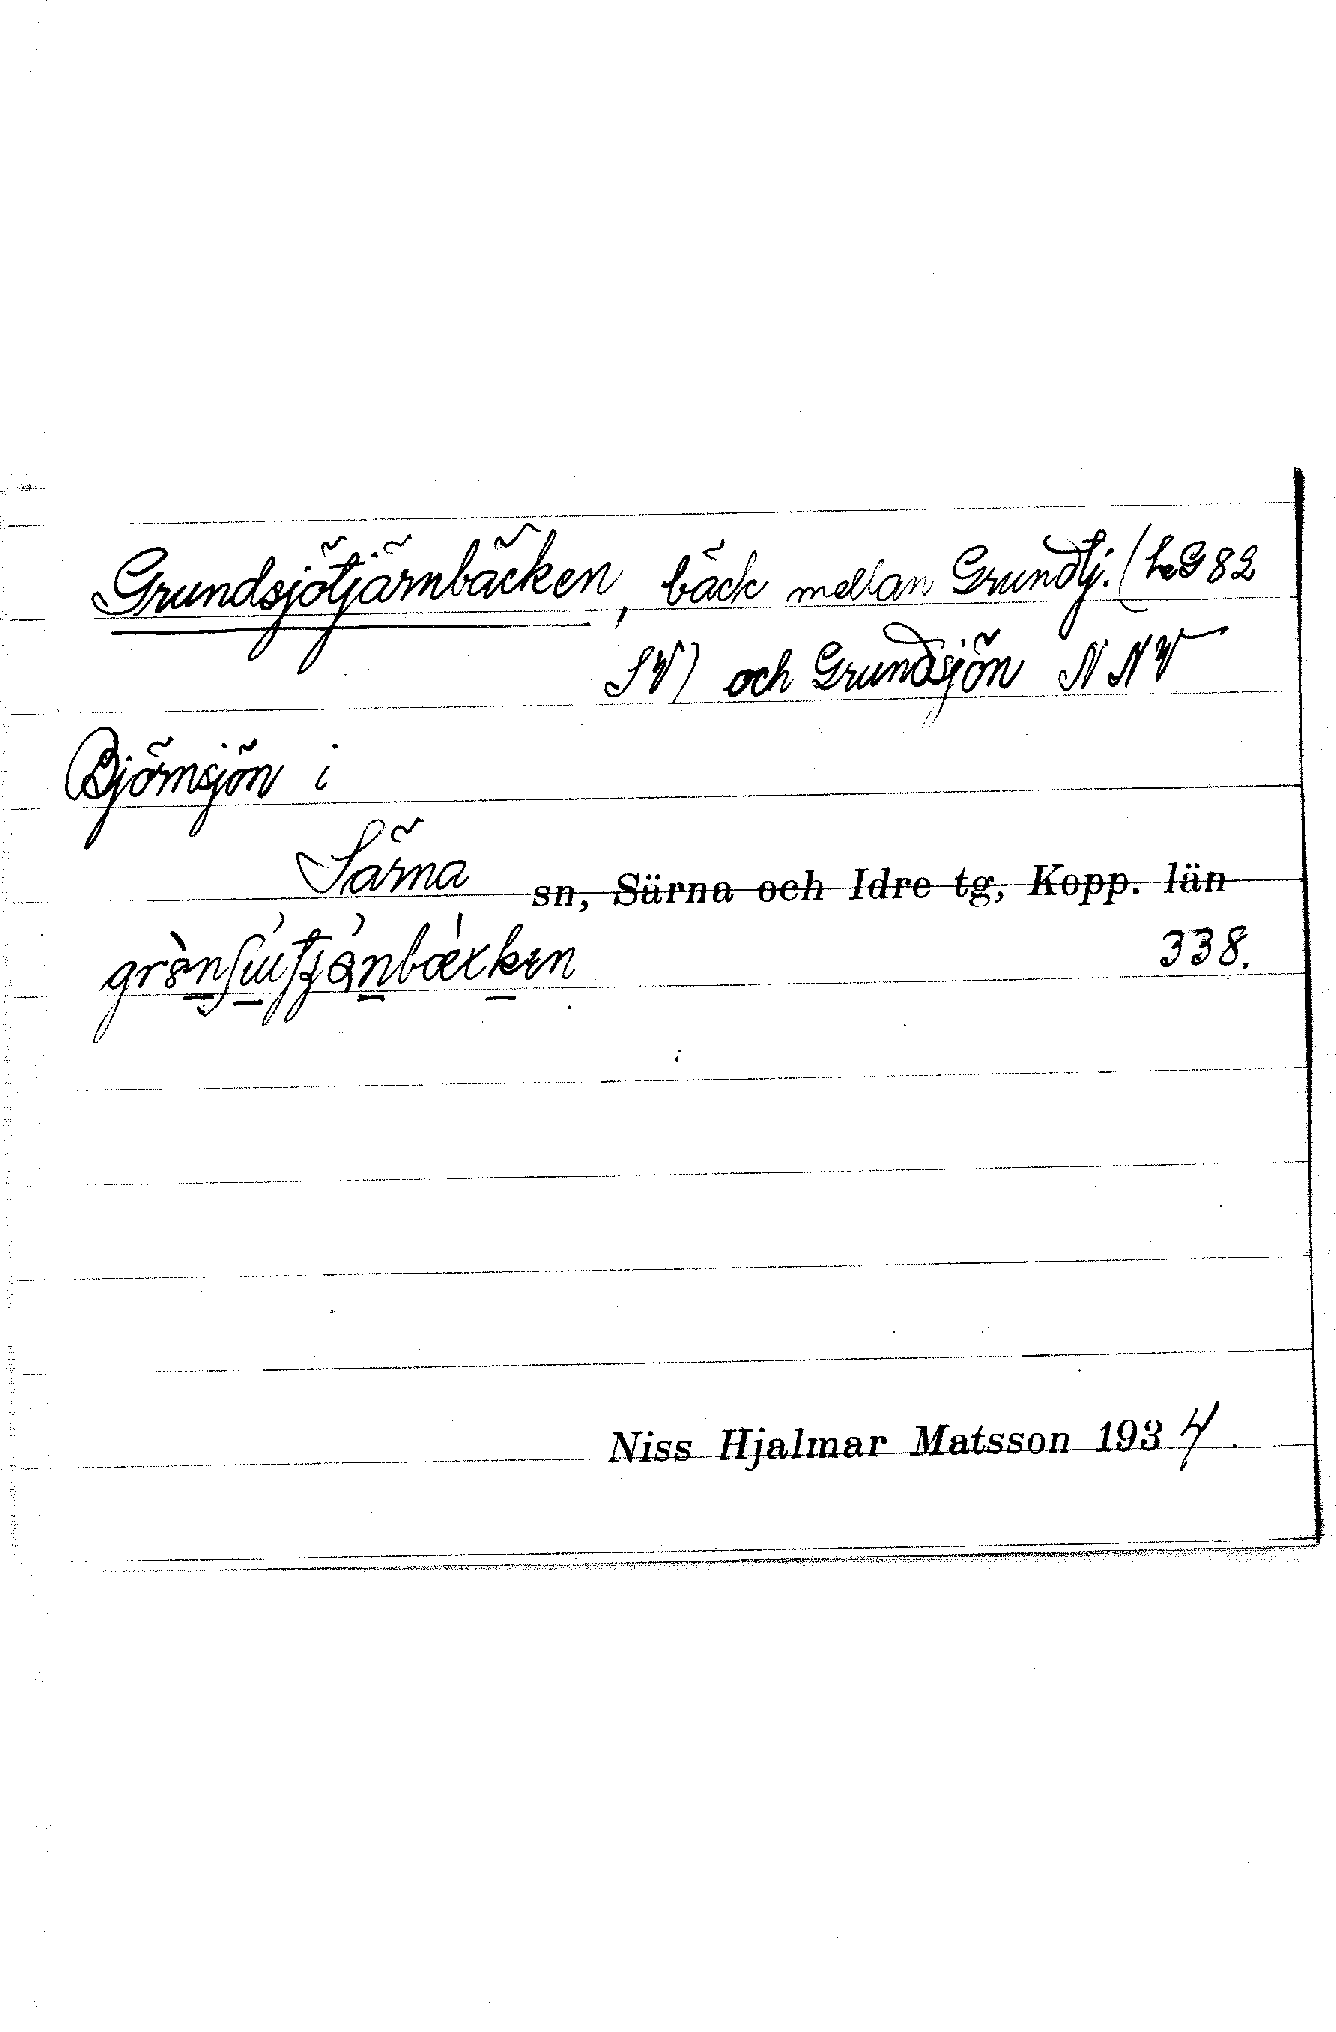 Grundsjötjärnbäcken, bäck mellan Grundtj. (LG 82
SV) och Grundsjön NNV
Björnsjön i
Särna sn, Särna och Idre tg, Kopp. län
338.
Niss Hjalmar Matsson 1934